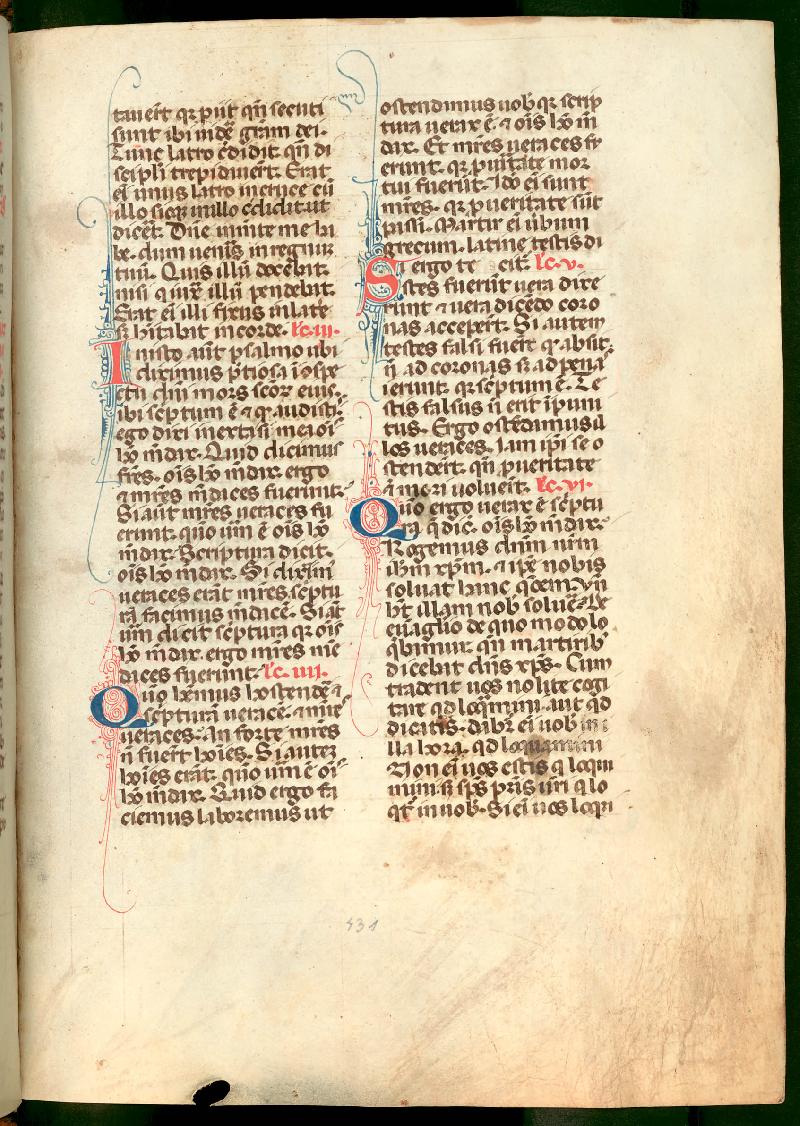 tauert qr piit qñ secuti
sunt ibi inde gram dei.
Tunc latro credidit. qñ di
scipli trepidauert. Erat
ei unus latro in cruce cu
illo sicqr in illo credidit ut
diceret. Dñe memento me hi
be. dum uenis in regnum
tuu. Quis illu docebat.
nisi q iuxta illu pendebat.
Erat ei illi fixus in late
re s habitabat in corde. lc. iii.
In isto aut psalmo ubi
dicimus pretiosa i cospe
ctu dni mors scor eius.
ibi scptum e & qr audisti.
ego dixi in extasi mea oi
ho mdax. Quid dicimus
fres. ois ho mdax. ergo
& mres mdaces fuerunt.
Si aut mres ueraces fu
erunt. quo uum e ois ho
mdax. Scriptura dicit.
ois ho mdax. Si dixim
ueraces erat mres scptu
ra facimus mdace. Si at
uum dicit scptura qr ois
ho mdax. ergo mres me
daces fuerunt. lc. iiii.
Quo hemus & ostendere &
scptura uerace. & mres
ueraces. An forte mres
n fuert hoies. Si autez
hoies erat. quo uum e ois
ho mdax. Quid ergo fa
ciemus laboremus ut
ostendimus uob qr scrip
tura uerax e. & ois ho m
dax. Et mres ueraces fu
erunt. qr p uitate mor
tui fuerut. Ido ei sunt
mres. qr p ueritate sut
passi. Martir ei ubum
grecum. latine testis di
Si ergo te cit. lc. v.
stes fuerut uera dixe
runt & uera dicedo coro
nas accepert. Si autem
testes falsi fuert q absit.
n ad coronas s ad pena
ierunt. qr scptum e. Te
stis falsus n erit ipuni
tus. Ergo ostedimus il
los ueraces. Iam ipi se o
stendert. qñ p ueritate
& mori uoluert. lc. vi.
Quo ergo uerax e scptu
ra q dic. ois ho mdax.
Rogemus dnm nrm
ihm xpm. & ipe nobis
soluat hunc qstem. Vn
ht illam nob soluere. De
euaglio de quo modo lo
qbimur. qñ martirib
dicebat dns xps. Cum
tradent uos nolite cogi
tare qd loqmini. aut qd
dicatis. dabit ei uob in i
lla hora. qd loquamini
Non ei uos estis q loqui
mini. s sps pris uri q lo
qt in uob. Si ei uos loqui
431